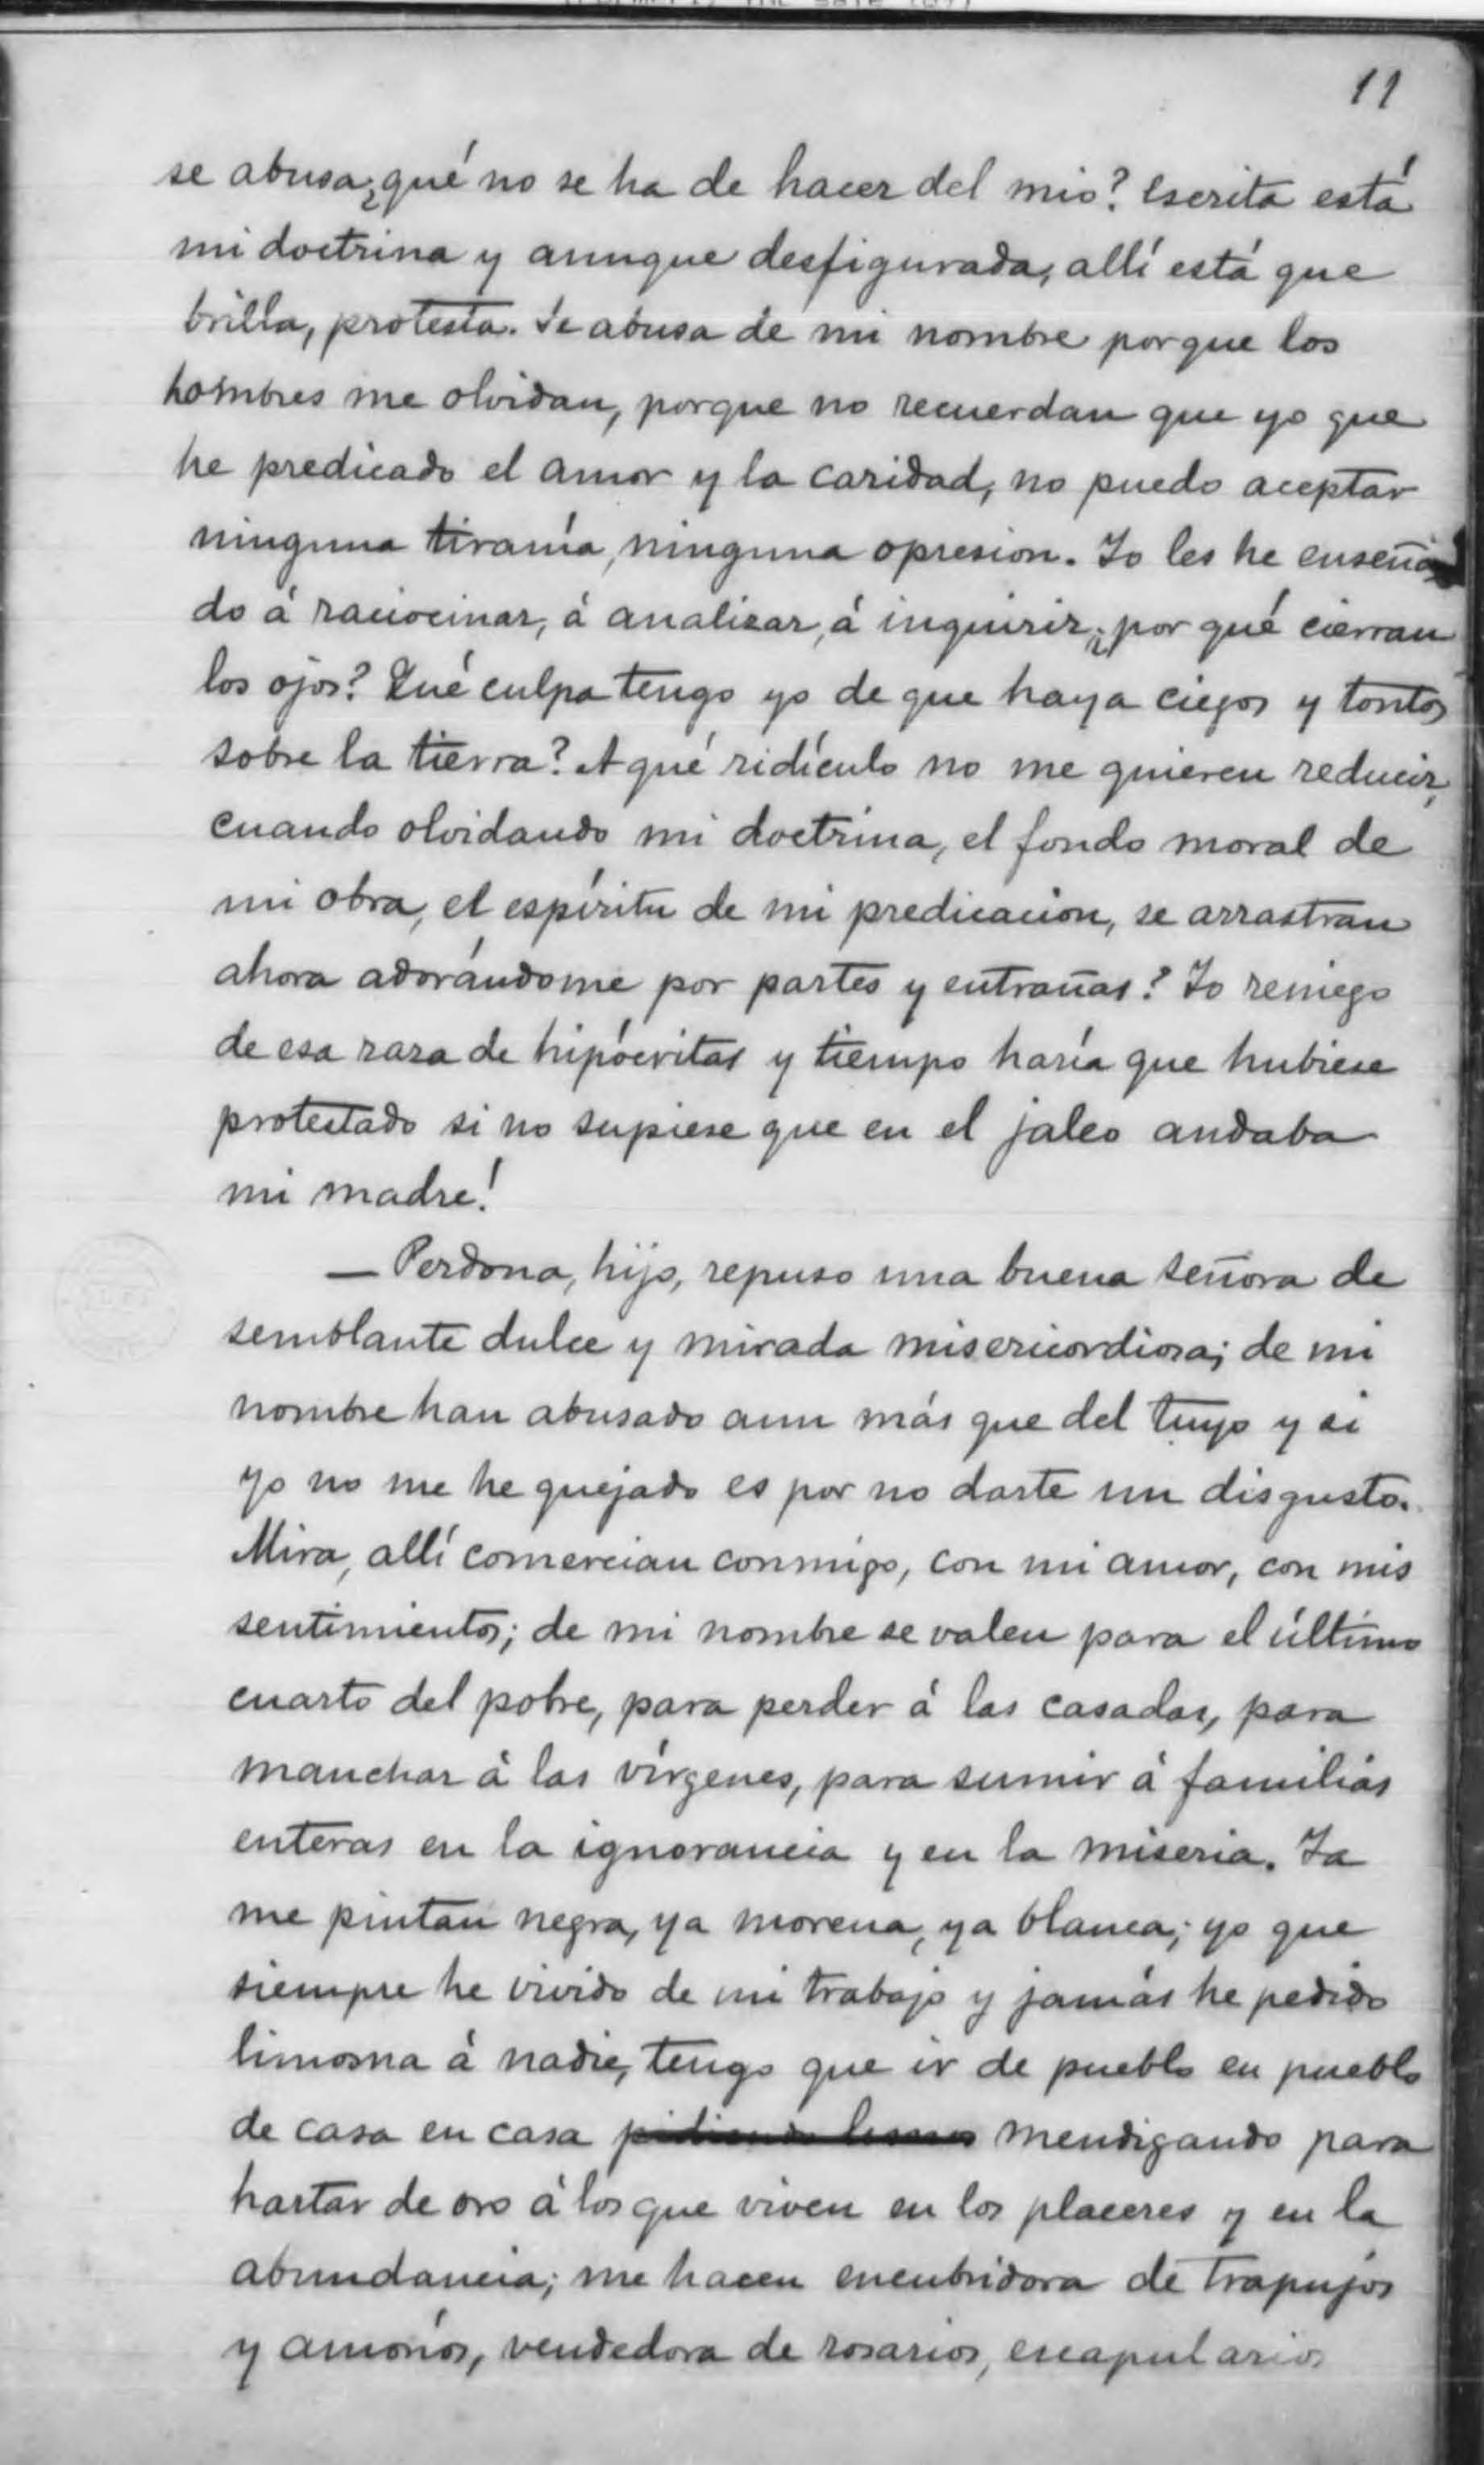 11
se abusa, ¿qué no se ha de hacer del mio? Escrita está
mi doctrina y aunque desfigurada, allí está que
brilla, protesta. Se abusa de mi nombre porque los
hombres me olvidan, porque no recuerdan que yo que
he predicado el amor y la caridad, no puedo aceptar
ninguna tiranía, ninguna opresion. Yo les he enseña
do á raciocinar, á analizar, á inquirir, ¿por qué cierran
los ojos? Qué culpa tengo yo de que haya ciegos y tontos
sobre la tierra? A qué ridículo no me quieren reducir,
cuando olvidando mi doctrina, el fondo moral de
mi obra, el espíritu de mi predicacion, se arrastran
ahora adorándome por partes y entrañas? Yo reniego
de esa raza de hipócritas y tiempo haría que hubiese
protestado si no supiese que en el jaleo andaba
mi madre!
— Perdona, hijo, repuso una buena señora de
semblante dulce y mirada misericordiosa; de mi
nombre han abusado aun más que del tuyo y si
yo no me he quejado es por no darte un disgusto.
Mira, allí comercian conmigo, con mi amor, con mis
sentimientos; de mi nombre se valen para el último
cuarto del pobre, para perder á las casadas, para
manchar á las vírgenes, para sumir á familias
enteras en la ignorancia y en la miseria. Ya
me pintan negra, ya morena, ya blanca; yo que
siempre he vivido de mi trabajo y jamás he pedido
limosna á nadie, tengo que ir de pueblo en pueblo
de casa en casa pidiendo mendigando para
hartar de oro á los que viven en los placeres y en la
abundancia; me hacen encubridora de trapujos
y amoríos, vendedora de rosarios, escapularios